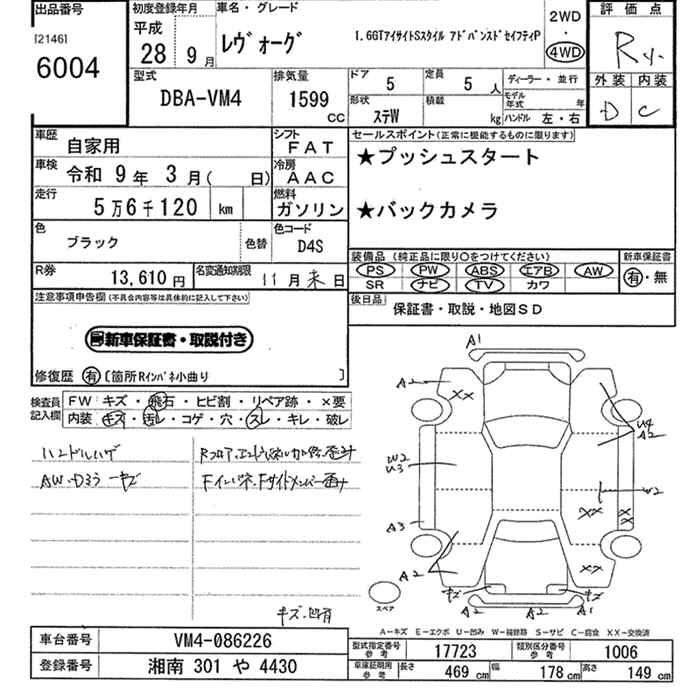 出品番号
[2146]
6004
初度登録年月
平成
28年 9月
車名・グレード
レヴォーグ
1.6GTアイサイトSスタイル アドバンスドセイフティP
2WD
・
4WD
評価点
R
外装 内装
D C
型式
DBA-VM4
排気量
1599 CC
ドア 5
定員 5人
形状 ステW
積載 kg
ディーラー・並行
モデル年式 年
ハンドル 左・右
車歴 自家用
シフト FAT
車検 令和 9年 3月( 日)
冷房 AAC
走行 5万6千120 km
燃料 ガソリン
色 ブラック
色替
色コード D4S
R券 13,610円
名変通知期限 11月末日
セールスポイント(正常に機能するものに限ります)
★プッシュスタート
★バックカメラ
装備品 (純正品に限り○をつけてください)
PS PW ABS エアB AW
SR ナビ TV カワ
新車保証書
有・無
後日品
保証書・取説・地図SD
注意事項申告欄(不具合内容等は具体的に記入して下さい)
新車保証書・取説付き
修復歴 有 〔箇所Rインパネ小曲り 〕
検査員記入欄
FW キズ・飛石・ヒビ割・リペア跡・×要
内装 キズ・汚レ・コゲ・穴・スレ・キレ・破レ
ハンドルハゲ
AW・D33 キズ
キズ・凹有
A1
A2
XX
U4
A2
W2
U3
W2
XX
XX
A3
A2
A2
XX
キズ
キズ
A2
A2
A1
スペア
A-キズ E-エクボ U-凹み W-補修跡 S-サビ C-腐食 XX-交換済
車台番号 VM4-086226
登録番号 湘南 301 や 4430
型式指定番号 参考 17723
類別区分番号 参考 1006
車庫証明用 参考
長さ 469 cm
幅 178 cm
高さ 149 cm